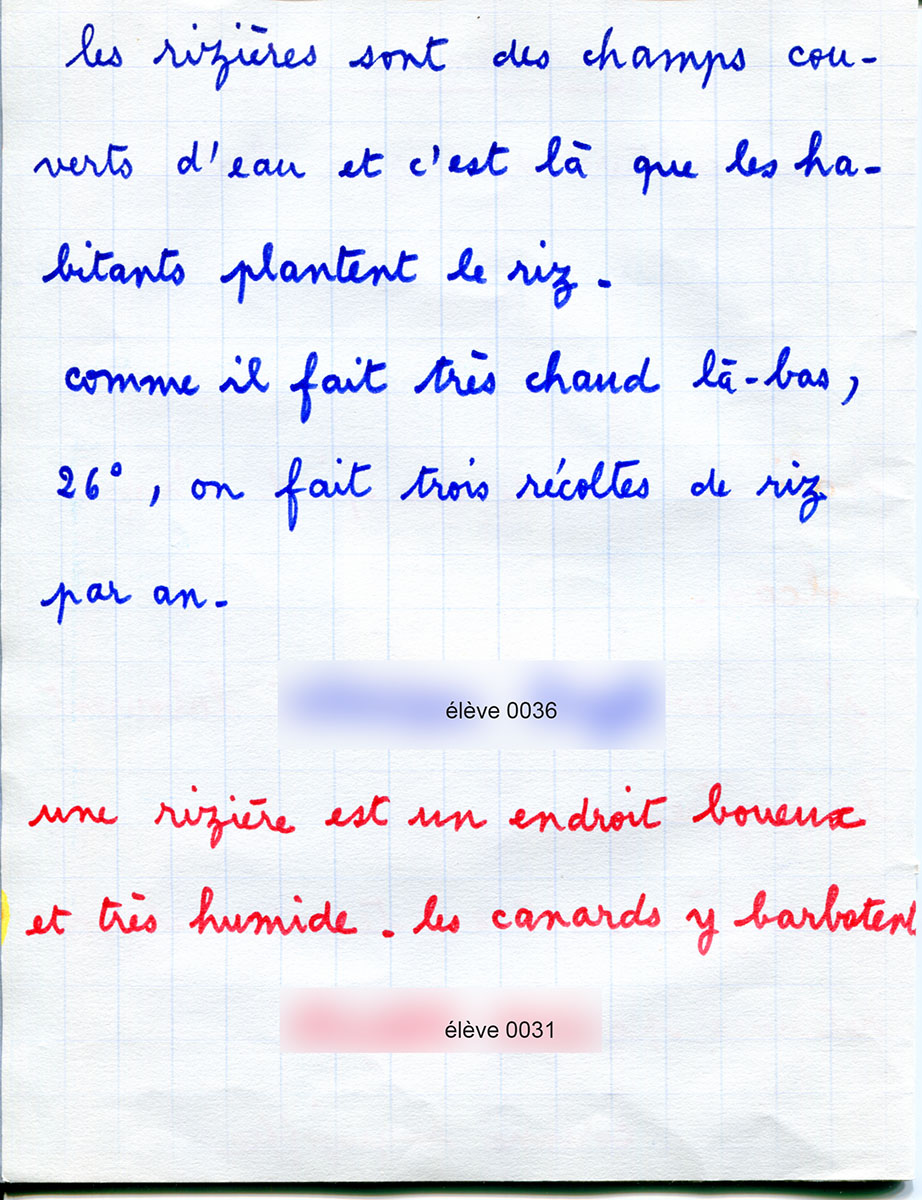 les rizières sont des champs cou-
verts d'eau et c'est là que les ha-
bitants plantent le riz.
comme il fait très chaud là-bas,
26°, on fait trois récoltes de riz
par an.
élève 0036
une rizière est un endroit boueux
et très humide. les canards y barbotent
élève 0031